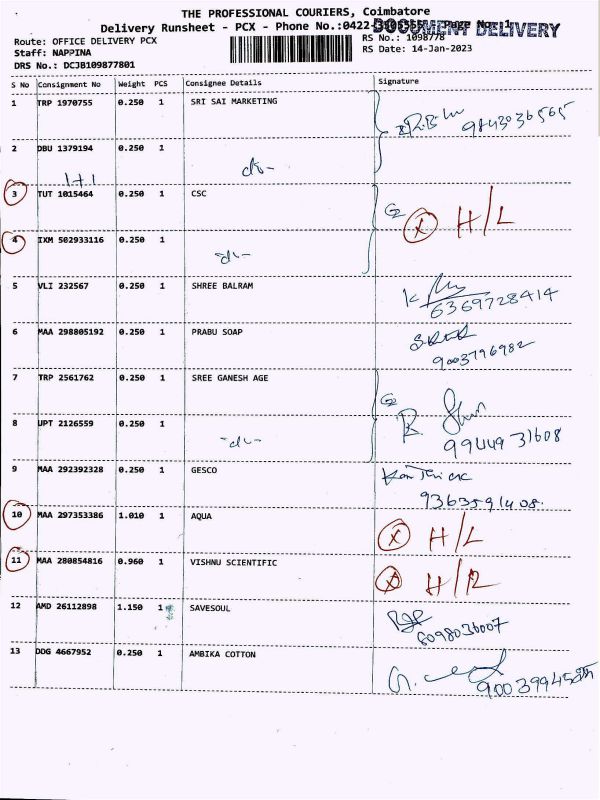 THE PROFESSIONAL COURIERS, Coimbatore
Delivery Runsheet - PCX - Phone No.:0422- Page No: 1
DOCUMENT DELIVERY
Route: OFFICE DELIVERY PCX
RS No.: 1098778
Staff: NAPPINA
RS Date: 14-Jan-2023
DRS No.: DCJB109877801
S No Consignment No Weight PCS Consignee Details Signature
1 TRP 1970755 0.250 1 SRI SAI MARKETING
9843036565
2 DBU 1379194 0.250 1 -do-
1+1
3 TUT 1015464 0.250 1 CSC
X H/L
4 IXM 502933116 0.250 1 -do-
5 VLI 232567 0.250 1 SHREE BALRAM
6369728414
6 MAA 298805192 0.250 1 PRABU SOAP
9003796982
7 TRP 2561762 0.250 1 SREE GANESH AGE
8 UPT 2126559 0.250 1 -do-
99449 31608
9 MAA 292392328 0.250 1 GESCO
9363591408.
10 MAA 297353386 1.010 1 AQUA X H/L
11 MAA 280854816 0.960 1 VISHNU SCIENTIFIC X H/R
12 AMD 26112898 1.150 1 SAVESOUL
6098036007
13 DDG 4667952 0.250 1 AMBIKA COTTON